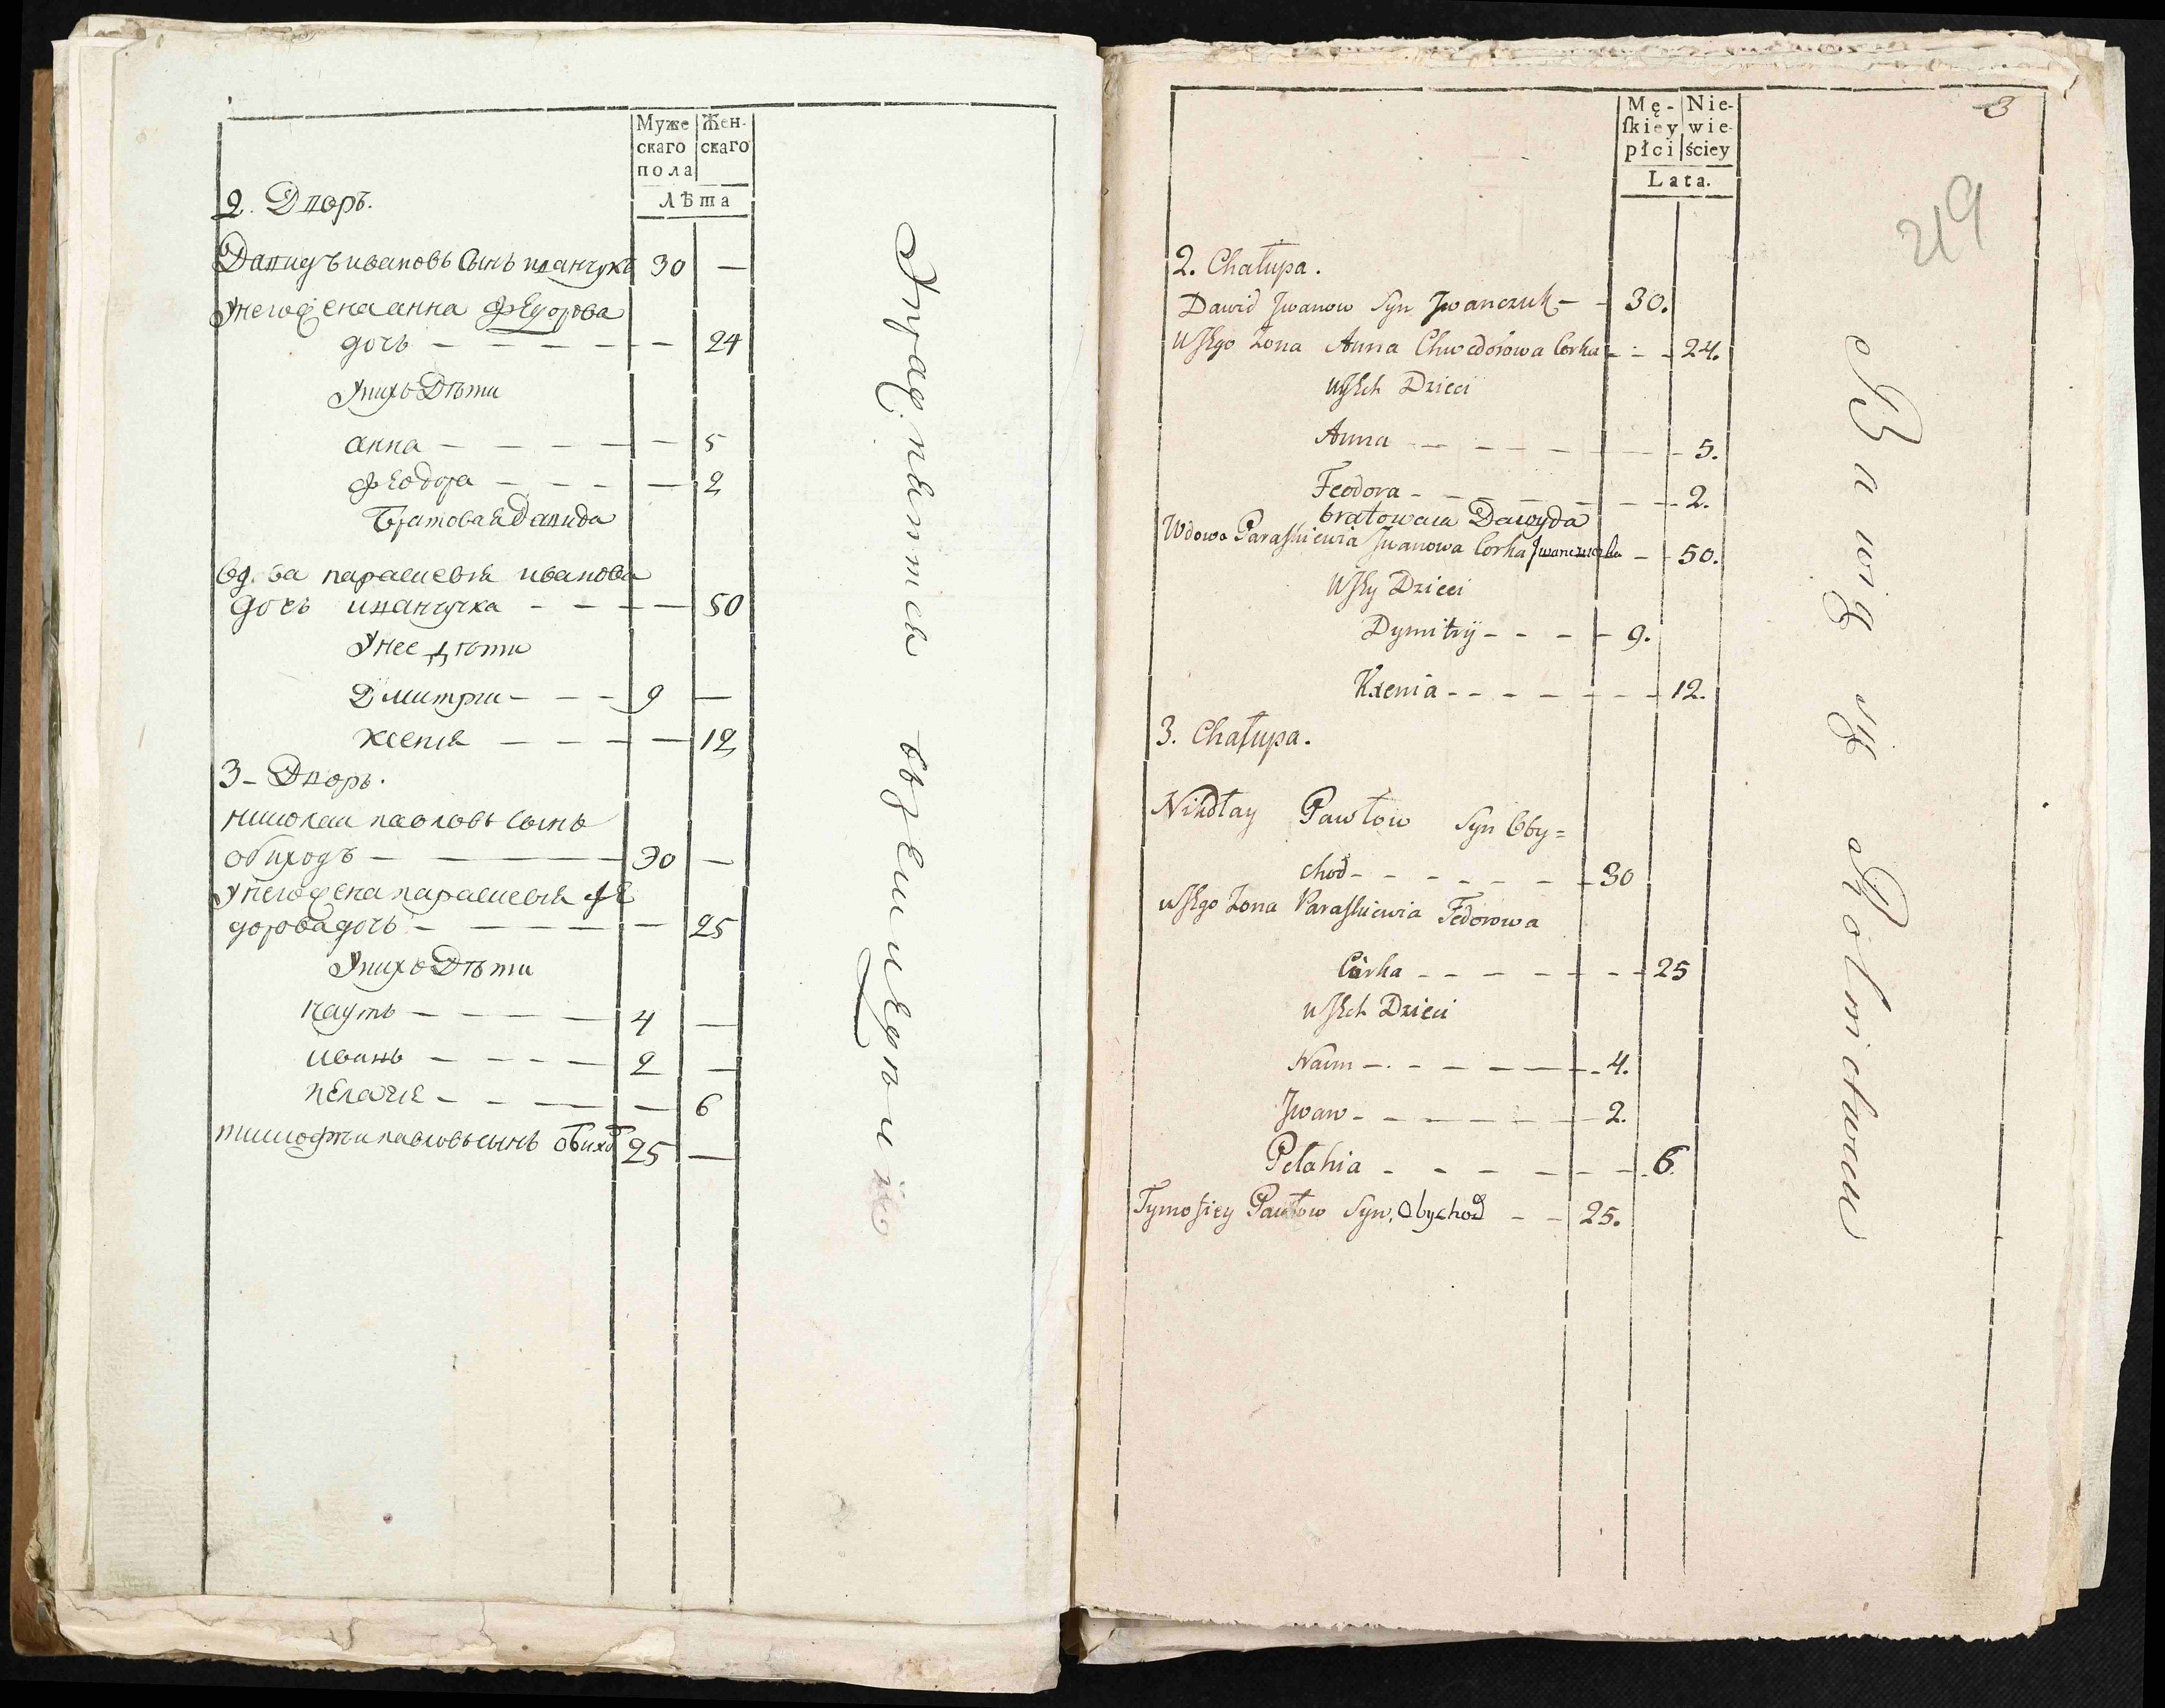 Муже
скаго
пола
Жен-
скаго
Лѣта
2. Дворъ.
Давидъ ивановъ сынъ иванчукъ 30 —
Унего жена анна федорова
дочь — — — — — — 24
Унихъ Дѣти
анна — — — — — — 5
феодора — — — — 2
Братовая Давида
вдова парасиевiя иванова
дочь иванчучка - - — — 50
Унее дѣти
Дмитри - — - - 9 —
ксенiя — — — — 12
3 - Дворъ.
николаи павловъ сынъ
обиходъ — — — 30 —
Унего жена парасиевiя фе
дорова дочь — — — — — 25
Унихъ Дѣти
наумъ — — — — 4 —
иванъ — — — — 2 —
пелагiя — — — — — 6
тимофѣи павловъ сынъ обихо 25 —
Упражняются въ земледѣлiи
Mę-
ſkiey
płci
Nie-
wie-
ściey
Lata.
3
219
2. Chałupa.
Dawid Jwanow Syn Jwanczuk — - 30.
Uſkgo Zona Anna Chwedorowa Corka - - - 24.
Uſkch Dzieci
Anna - — - - — - — - - 5.
Feodora - - - — - — - - 2.
bratowaia Dawyda
Wdowa Paraſkiewia Jwanowa Corka Jwanczuczka — - 50.
Uſky Dzieci
Dymitry - - - - - 9.
Ksenia - - - - - - - - 12.
3. Chałupa.
Nikołay Pawłow Syn Oby=
chod - - - - - - - 30
uſkgo Zona Paraſkiewia Fedorowa
Córka - - - - - - - - 25
uſkch Dzieci
Naum — - - - - - - 4.
Jwan - - - - - - 2.
Pelahia - - - - - - - 6.
Tymofiey Pawłow Syn, Obychod - - 25.
Bawią się Rolnictwem